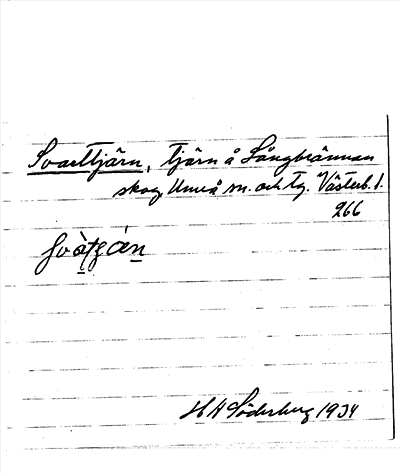 Svarttjärn, tjärn å Långbrännan
skog, Umeå sn. och tg. Västerb. l.
266
H H Söderberg 1934